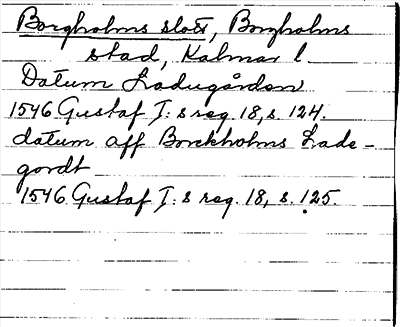 Borgholms slott, Borgholms
stad, Kalmar l.
Datum Ladugården
1546 Gustaf I:s reg. 18, s. 124.
datum aff Borckholms Lade-
gordt
1546 Gustaf I:s reg. 18, s. 125.